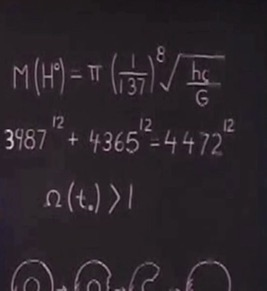 M(H°)=π(1/137)⁸√(hc/G)
3987¹²+4365¹²=4472¹²
Ω(t₀)>1